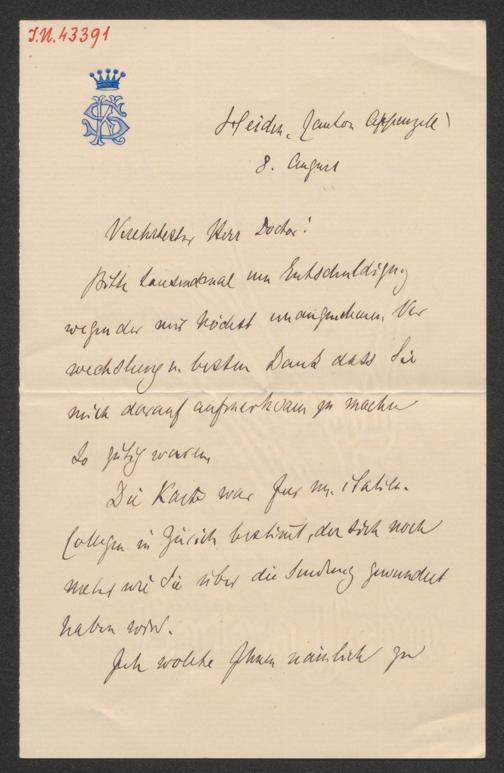 I.N. 43391
Heiden, Canton Appenzell
8. August
Verehrtester Herr Doctor!
Bitte tausendmal um Entschuldigung
wegen der mir höchst unangenehmen Ver
wechslung u. besten Dank dass Sie
mich darauf aufmerksam zu machen
so gütig waren
Die Karte war für m. italien.
Collegen in Zürich bestimmt, der sich noch
mehr wie Sie über die Sendung gewundert
haben wird.
Ich wollte Ihnen nämlich zu